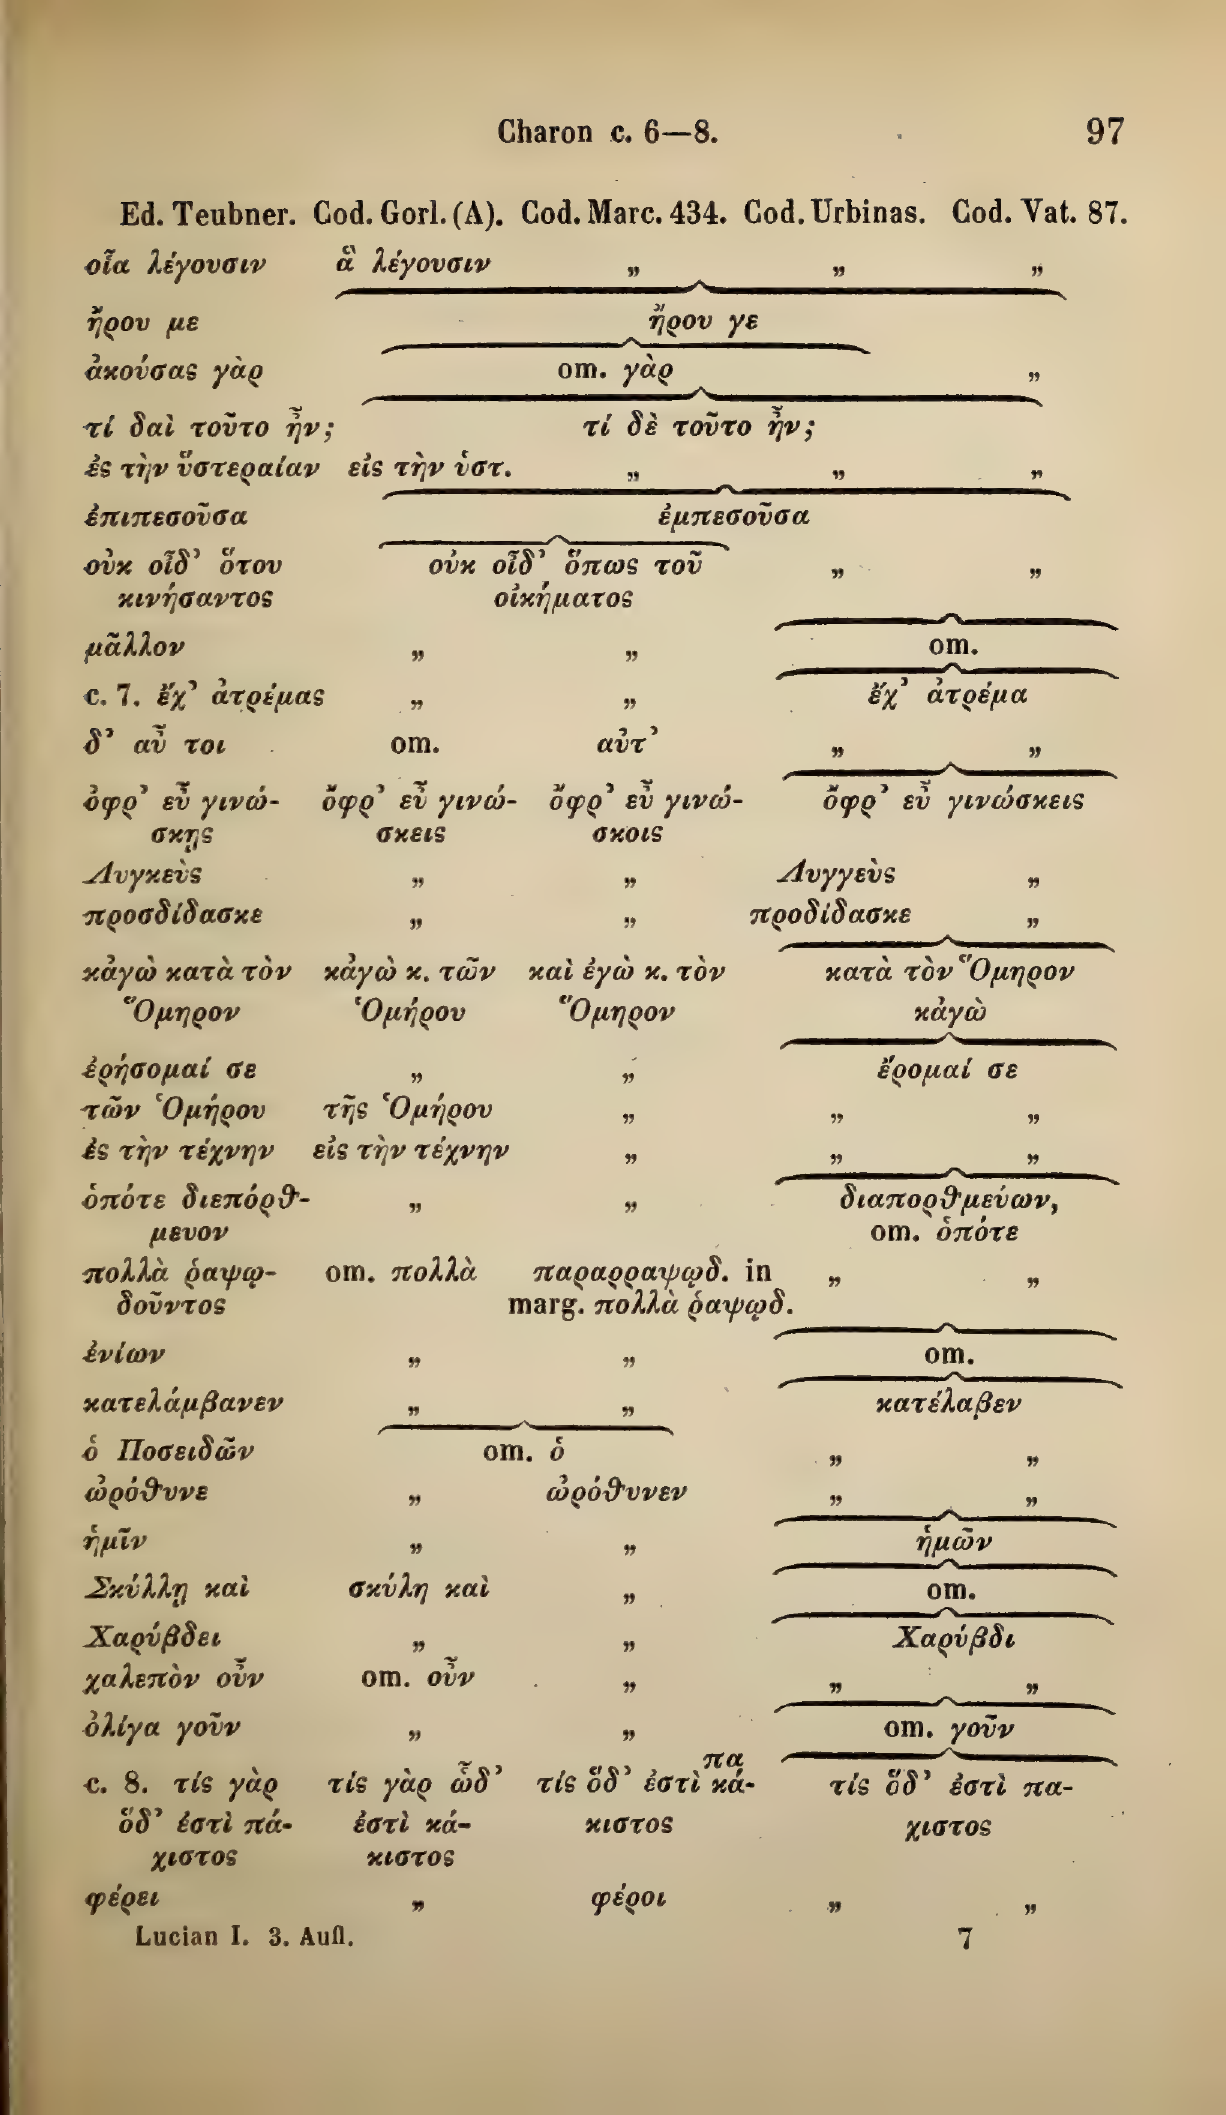 Charon c. 6—8. 97
Ed. Teubner. Cod. Gorl. (A). Cod. Marc. 434. Cod. Urbinas. Cod. Vat. 87.
οἷα λέγουσιν ἃ λέγουσιν „ „ „
ἤρου με ἤρου γε
ἀκούσας γὰρ om. γὰρ „
τί δαὶ τοῦτο ἦν; τί δὲ τοῦτο ἦν;
ἐς τὴν ὕστεραίαν εἰς τὴν ὑστ. „ „ „
ἐπιπεσοῦσα ἐμπεσοῦσα
οὐκ οἶδ’ ὅτου οὐκ οἶδ’ ὅπως τοῦ „ „
κινήσαντος οἰκήματος
μᾶλλον „ „ om.
c. 7. ἔχ’ ἀτρέμας „ „ ἔχ’ ἀτρέμα
δ’ αὖ τοι om. αὖτ’ „ „
ὀφρ’ εὖ γινώ- ὄφρ’ εὖ γινώ- ὄφρ’ εὖ γινώ- ὄφρ’ εὖ γινώσκεις
σκῃς σκεις σκοις
Λυγκεὺς „ „ Λυγγεὺς „
προσδίδασκε „ „ προδίδασκε „
κἀγὼ κατὰ τὸν κἀγὼ κ. τῶν καὶ ἐγὼ κ. τὸν κατὰ τὸν Ὅμηρον
Ὅμηρον Ὁμήρου Ὅμηρον κἀγὼ
ἐρήσομαί σε „ „ ἔρομαί σε
τῶν Ὁμήρου τῆς Ὁμήρου „ „ „
ἐς τὴν τέχνην εἰς τὴν τέχνην „ „ „
ὁπότε διεπόρθ- „ „ διαπορθμεύων,
μευον om. ὁπότε
πολλὰ ῥαψῳ- om. πολλὰ παραρραψῳδ. in „ „
δοῦντος marg. πολλὰ ῥαψῳδ.
ἐνίων „ „ om.
κατελάμβανεν „ „ κατέλαβεν
ὁ Ποσειδῶν om. ὁ „ „
ὠρόθυνε „ ὠρόθυνεν „ „
ἡμῖν „ „ ἡμῶν
Σκύλλῃ καὶ σκύλη καὶ „ om.
Χαρύβδει „ „ Χαρύβδι
χαλεπὸν οὖν om. οὖν „ „ „
ὀλίγα γοῦν „ „ om. γοῦν
πα
c. 8. τίς γὰρ τίς γὰρ ὧδ’ τίς ὅδ’ ἐστὶ κά- τίς ὅδ’ ἐστὶ πα-
ὅδ’ ἐστὶ πά- ἐστὶ κά- κιστος χιστος
χιστος κιστος
φέρει „ φέροι „ „
Lucian I. 3. Aufl. 7